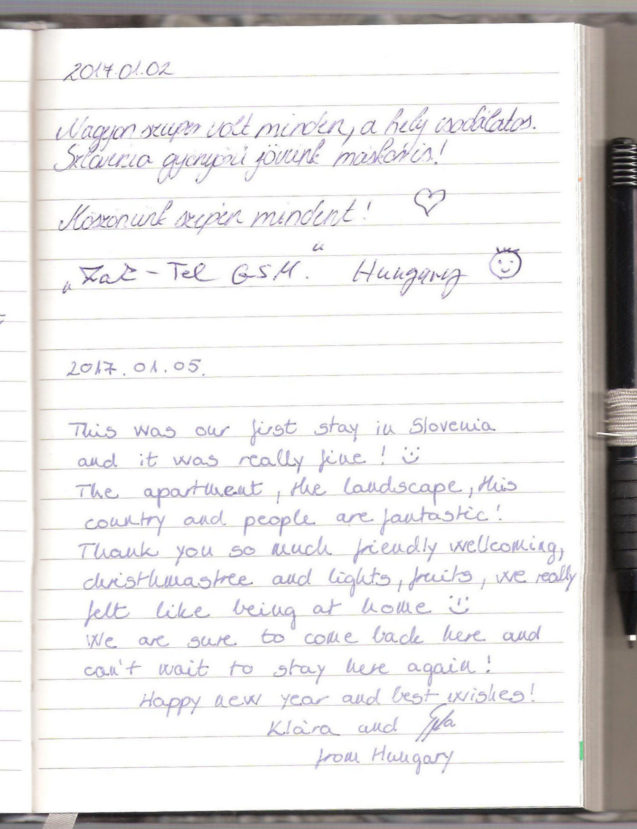 2017.01.02
Nagyon szuper volt minden, a hely csodálatos.
Szlovénia gyönyörű jövünk máskor is!
Köszönünk szépen mindent!
„Zak-Tel GSM.“ Hungary
2017.01.05.
This was our first stay in Slovenia
and it was really fine!
The apartment, the landscape, this
country and people are fantastic!
Thank you so much friendly wellcoming,
christhmastree and lights, fruits, we really
felt like being at home
We are sure to come back here and
can't wait to stay here again!
Happy new year and best wishes!
Klára and
from Hungary